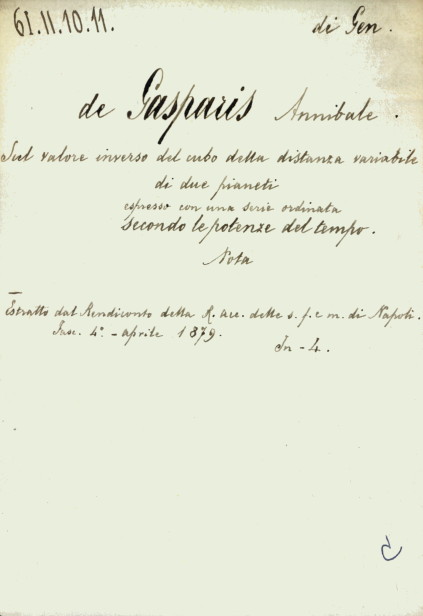 61.11.10.11.
di Gen.
de Gasparis Annibale.
Sul valore inverso del cubo della distanza variabile
di due pianeti
espresso con una serie ordinata
secondo le potenze del tempo.
Nota
Estratto dal Rendiconto della R. acc. delle s. f. e m. di Napoli.
Fasc. 4º - aprile 1879.
In - 4.